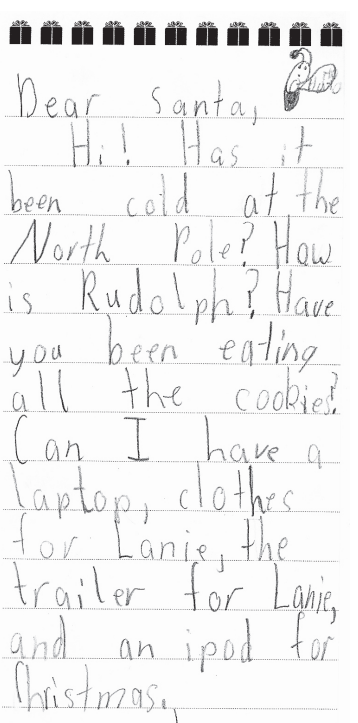 Dear Santa,
Hi! Has it
been cold at the
North Pole? How
is Rudolph? Have
you been eating
all the cookies?
Can I have a
laptop, clothes
for Lanie, the
trailer for Lanie,
and an ipod for
Christmas.